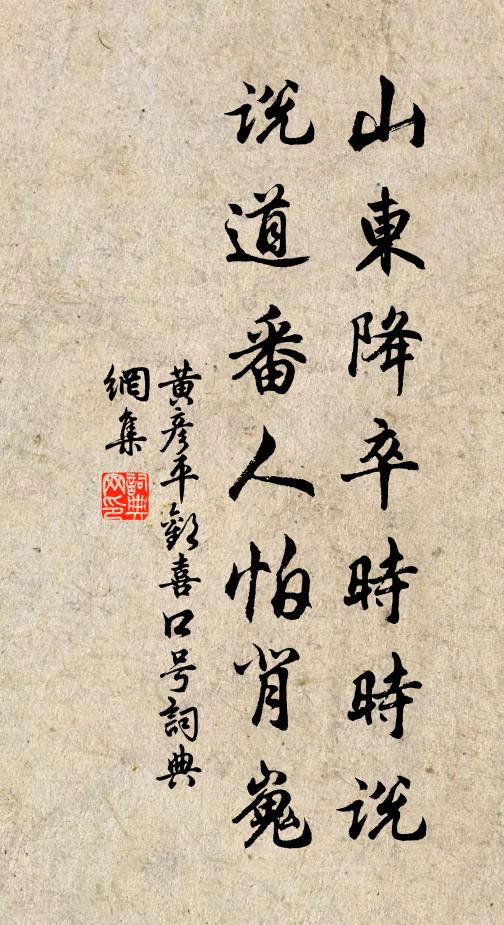 山東降卒時時說
說道番人怕肖嵬
黃彥平歡喜口号詞典
網集
詞典
网印